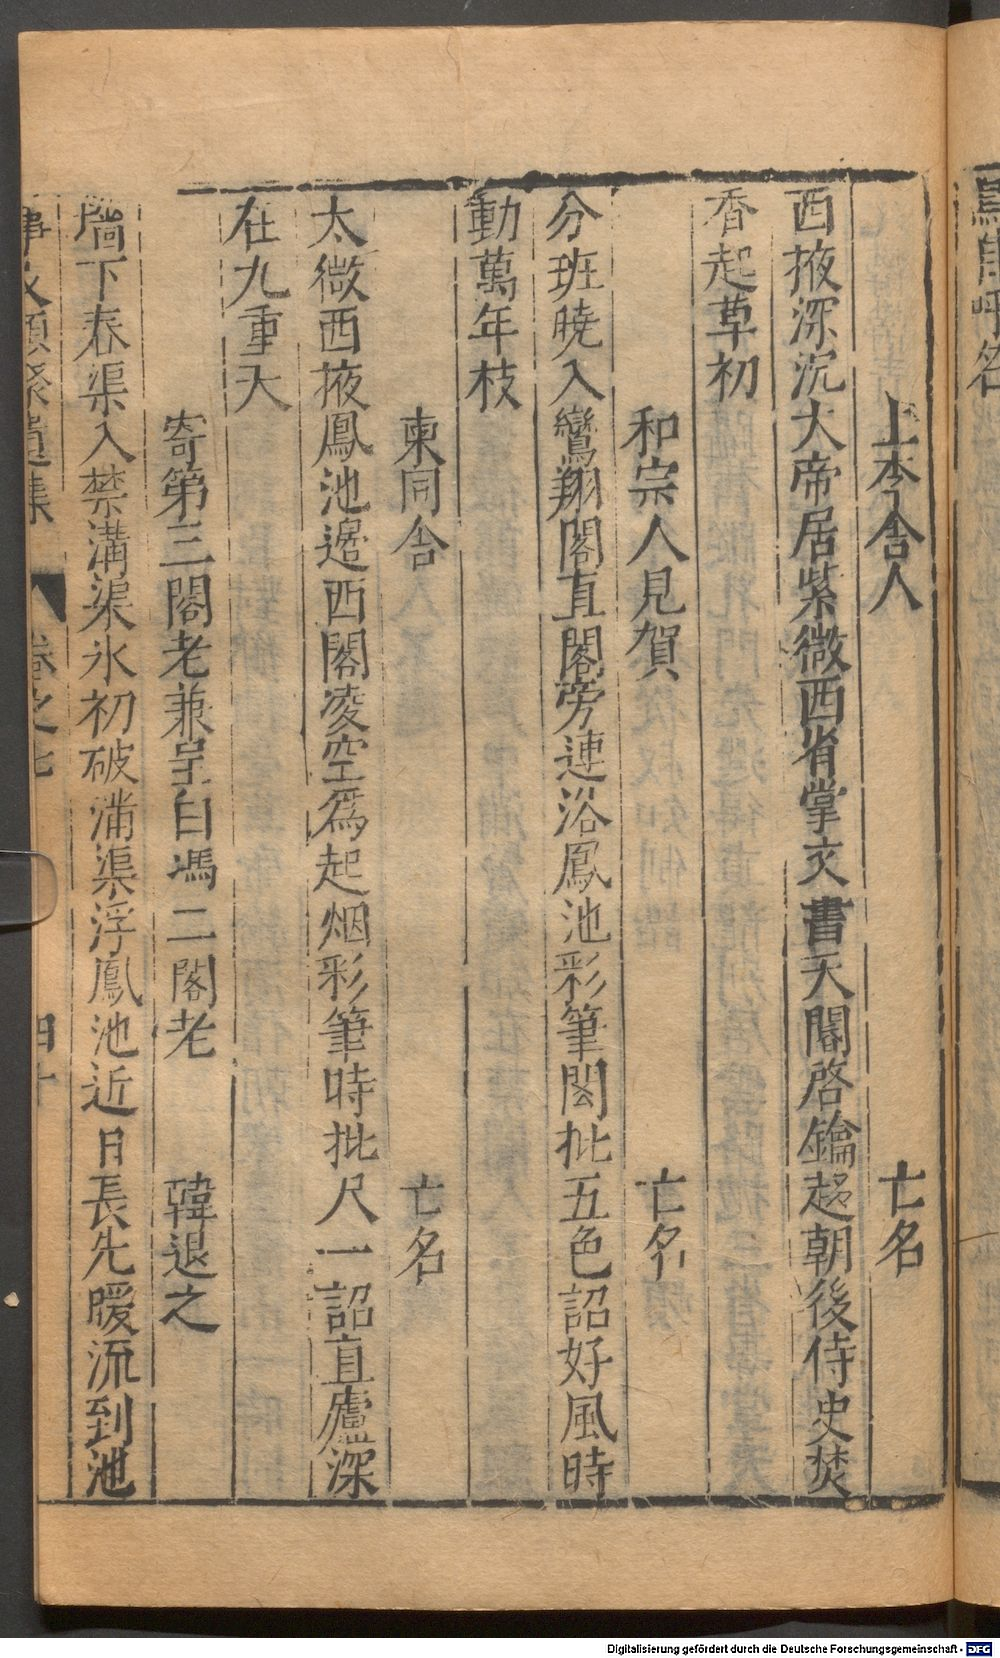 上李舍人　亡名
西掖深沉大帝居紫微西省掌文書天閽啓鑰趍朝後侍史焚
香起草初
和宗人見賀　亡名
分班曉入鸞翔閣直閣旁連浴鳳池彩筆閎批五色詔好風時
動萬年枝
柬同舎　亡名
太微西掖鳳池邊西閣凌空爲起烟彩筆時批尺一詔直廬深
在九重天
寄第三閣老兼呈白馮二閣老　韓退之
墻下春渠入禁溝渠氷初破滿渠浮鳳池近日長先暖流到池
事文類聚遺集　卷之七　四十
Digitalisierung gefördert durch die Deutsche Forschungsgemeinschaft - DFG